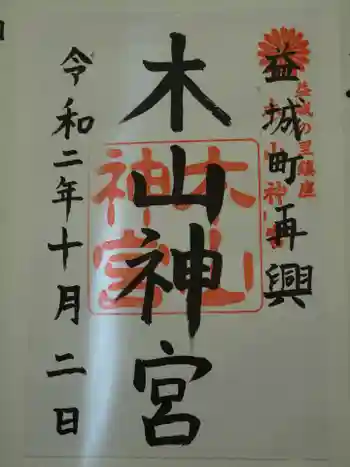 益城町再興
益城の里鎮座
木山神宮
木山神宮
木山神宮
令和二年十月二日